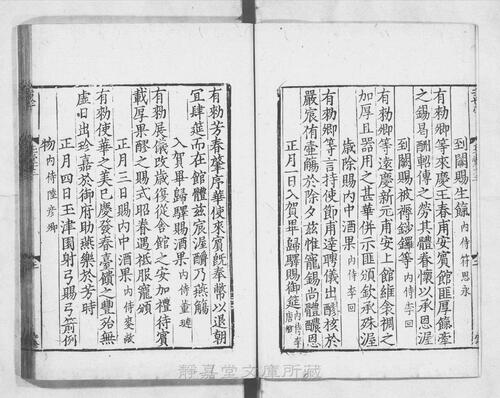 到闕賜生餼 內侍符思永
有勑卿等來慶王春甫安賓館匪厚餼牽
之錫曷酬軺傳之勞其體眷懷以承恩渥
到闕賜被褥鈔鑼等 內侍李回
有勑卿等遠慶新元甫安上館維衾裯之
加厚且器用之甚華併示匪頒欽承殊渥
歲除賜內中酒果 內侍李回
有勑卿等言持使節甫達聘儀出醪核於
嚴宸侑壼觴於除夕茲惟寵錫尚體醲恩
正月一日入賀畢歸驛賜御筵
有勑芳春肇序華使來賓旣奉幣以退朝
宜肆筵而在館體茲宸渥醻乃燕觴
入賀畢歸驛賜酒果 內侍董璉
有勑展儀改歲復從舍館之安加禮待賓
載厚果醪之賜式昭眷遇祗服寵頒
正月三日賜內中酒果 內侍麥
有勑使華之美已慶發春嘉礦之豐殆無
虛日出珍嘉於御府助燕樂於芳時
正月四日玉津園射弓賜弓箭例
物 內侍陸彥卿
靜嘉堂文庫所藏